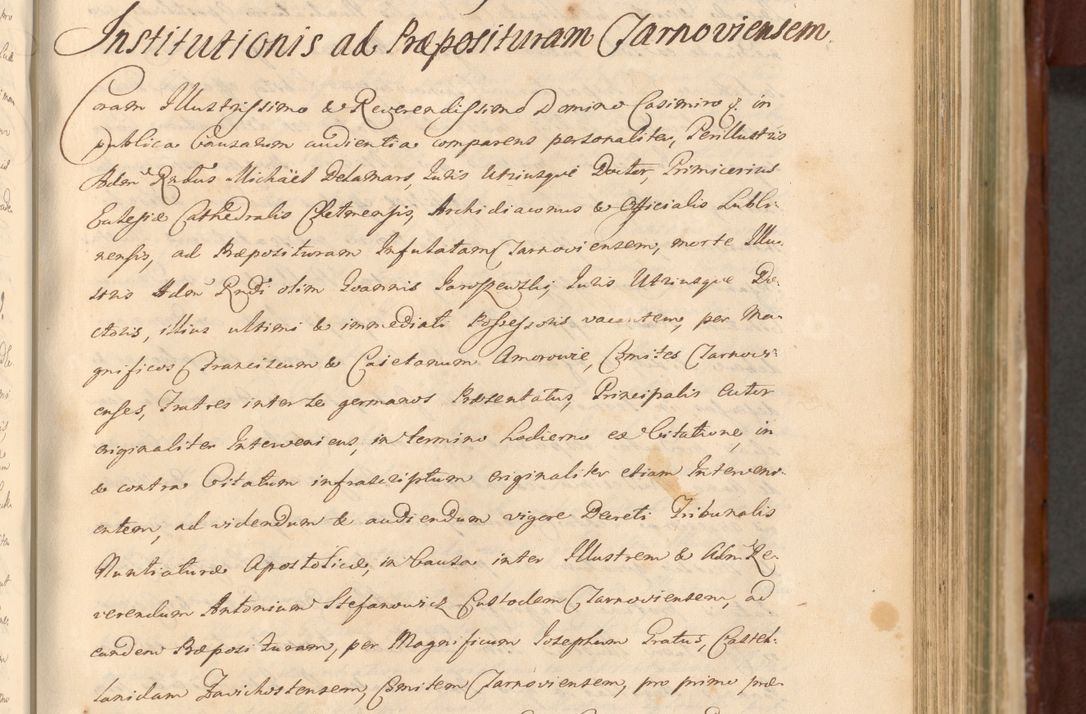 Institutionis ad Præposituram Tarnoviensem
Coram Illustrissimo & Reverendissimo Domino Casimiro &. in
publica Causarum audientia comparens personaliter, Perillustris
Adm. Rndus Michäel Delamars, Juris Utriusque Doctor, Primicerius
Eclesiæ Cathedralis Chelmensis, Archidiaconus & Officialis Lubli-
nensis, ad Præposituram Infulatam Tarnoviensem, morte Illu-
stris Adm. Rndi olim Joannis Jaroszewski, Juris Utriusque Do-
ctoris, illius ultimi & immediati Possessoris vacantem, per Ma-
gnificos Franciscum & Caietanum Amorowie, Comites Tarnovi-
enses, Fratres inter se germanos Præsentatus, Principalis Citor
originaliter Interveniens, in termino hodierno ex Citatione, in
& contra Citatum infrascriptum originaliter etiam Interveni-
entem, ad videndum & audiendum vigore Decreti Tribunalis
Nuntiaturæ Apostolicæ, in Causa inter Illustrem & Adm. Re-
verendum Antonium Stefanowicz Custodem Tarnoviensem, ad
eandem Præposituram, per Magnificum Josephum Gratus, Castel-
lanidam Zavichostensem, Comitem Tarnoviensem, pro primo præ-